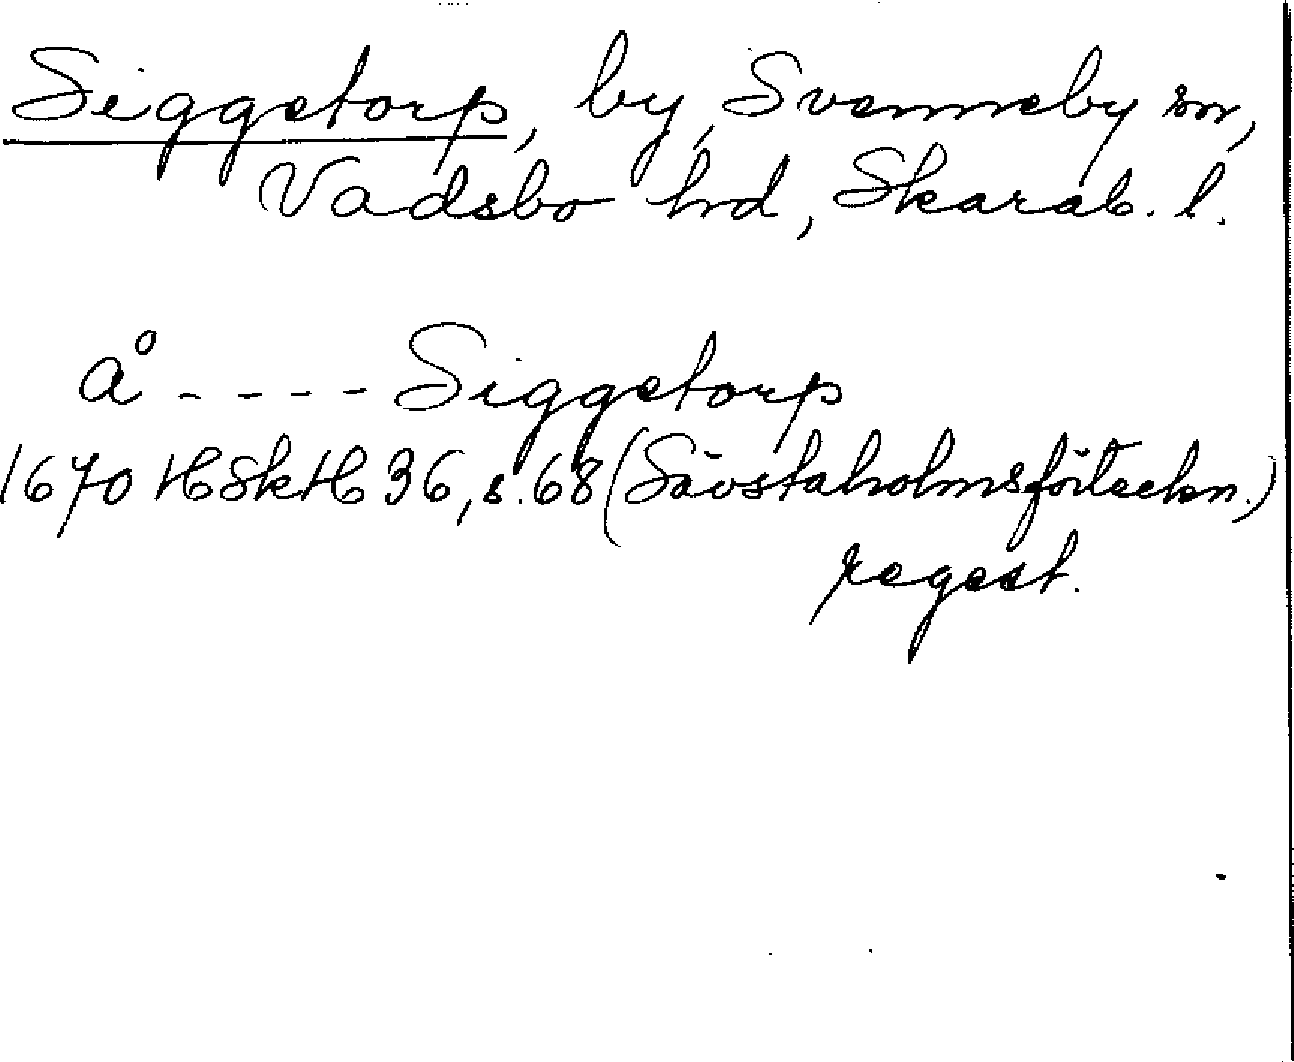 Siggetorp, by, Svenneby sn,
Vadsbo hd, Skarab. l.
å - - - - Siggetorp
1670 HSkH 36, s. 68 (Sävstaholmsförteckn.)
regest.